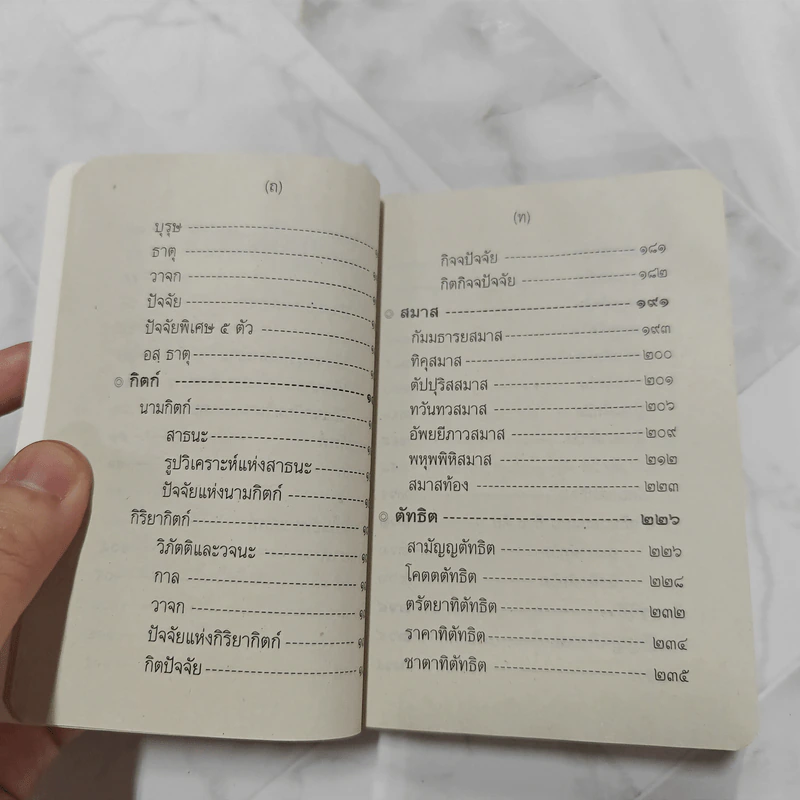 (ถ)
บุรุษ
ธาตุ
วาจก
ปัจจัย
ปัจจัยพิเศษ ๕ ตัว
อสฺ ธาตุ
๏ กิตก์
นามกิตก์
สาธนะ
รูปวิเคราะห์แห่งสาธนะ
ปัจจัยแห่งนามกิตก์
กิริยากิตก์
วิภัตติและวจนะ
กาล
วาจก
ปัจจัยแห่งกิริยากิตก์
กิตปัจจัย
(ท)
กิจจปัจจัย ๑๘๑
กิตกิจจปัจจัย ๑๘๒
๏ สมาส ๑๙๑
กัมมธารยสมาส ๑๙๓
ทิคุสมาส ๒๐๐
ตัปปุริสสมาส ๒๐๑
ทวันทวสมาส ๒๐๖
อัพยยีภาวสมาส ๒๐๙
พหุพพิหิสมาส ๒๑๒
สมาสท้อง ๒๒๓
๏ ตัทธิต ๒๒๖
สามัญญตัทธิต ๒๒๖
โคตตตัทธิต ๒๒๘
ตรัตยาทิตัทธิต ๒๓๒
ราคาทิตัทธิต ๒๓๔
ชาตาทิตัทธิต ๒๓๕